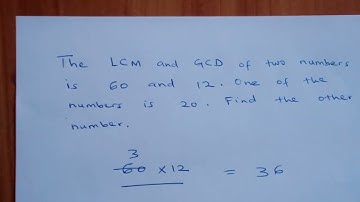 The LCM and GCD of two numbers
is 60 and 12. One of the
numbers is 20. Find the other
number.
3
60 x12 = 36